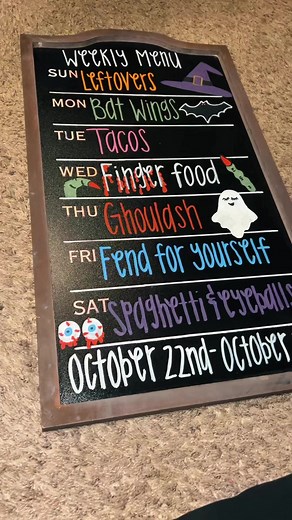 Weekly Menu
SUN Leftovers
MON Bat Wings
TUE Tacos
WED Finger food
THU Ghoulash
FRI Fend for yourself
SAT Spaghetti & eyeballs
October 22nd - October